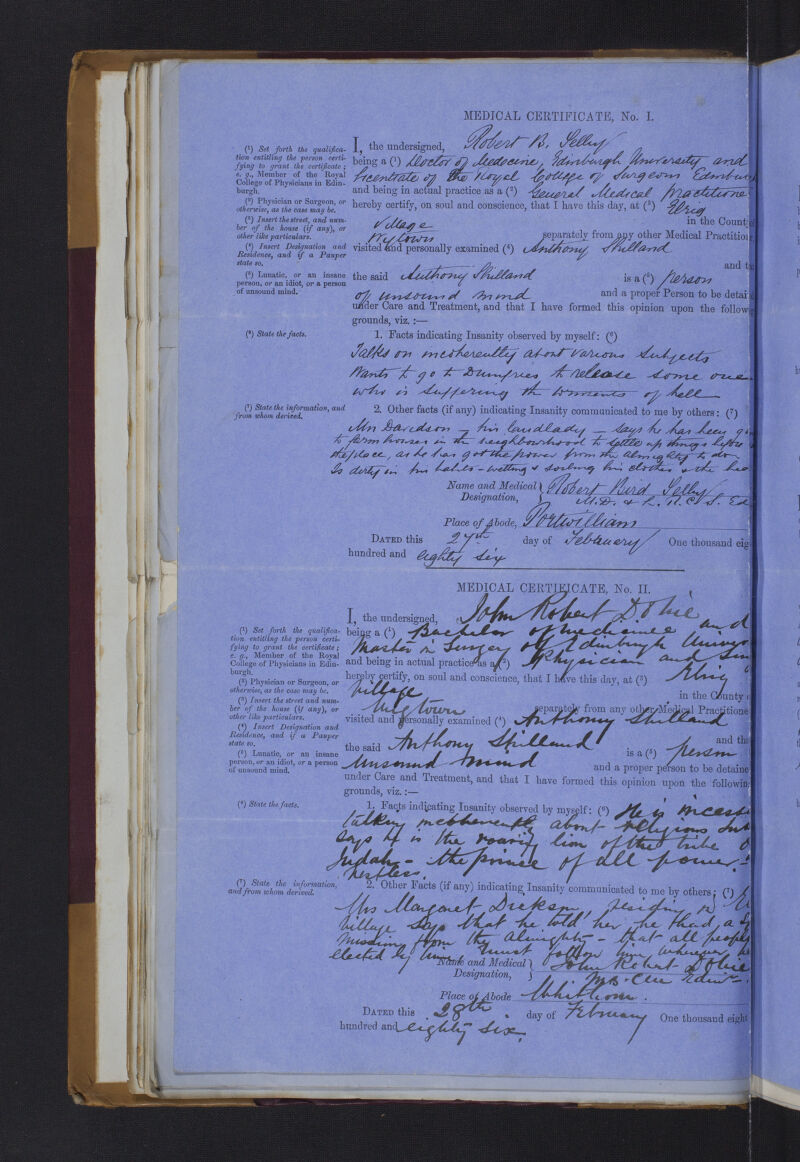 MEDICAL CERTIFICATE, No. I.
(¹) Set forth the qualifica-
tion entitling the person certi-
fying to grant the certificate;
e. g., Member of the Royal
College of Physicians in Edin-
burgh.
(²) Physician or Surgeon, or
otherwise, as the case may be.
(³) Insert the street, and num-
ber of the house (if any), or
other like particulars.
(⁴) Insert Designation and
Residence, and if a Pauper
state so.
(⁵) Lunatic, or an insane
person, or an idiot, or a person
of unsound mind.
I, the undersigned, Robert B. Selby
being a (¹) Doctor of Medecine, Edinburgh University and
Licentiate of the Royal College of Surgeons Edinbur
and being in actual practice as a (²) General Medical Practitione
hereby certify, on soul and conscience, that I have this day, at (³) Elrig
Village in the County
Wigtown separately from any other Medical Practition
visited and personally examined (⁴) Anthony Skilland
and t
the said Anthony Skilland is a (⁵) person
of unsound mind and a proper Person to be detai
under Care and Treatment, and that I have formed this opinion upon the follow
grounds, viz. :—
(⁶) State the facts.
1. Facts indicating Insanity observed by myself: (⁶)
Talks on incoherently about various subjects
Wants to go to Dumfries to release some one
who is suffering the torments of hell
(⁷) State the information, and
from whom derived.
2. Other facts (if any) indicating Insanity communicated to me by others: (⁷)
Mrs Davidson – his landlady – says he has been
to farm houses in the neighbourhood to settle up things before
the place, as he has got the power from the almighty to do
Is dirty in his habits – wetting & soiling his clothes & the
Name and Medical Designation, Robert Bird Selby
M.D. & L. R. C. S. Ed
Place of Abode, Portwilliam
DATED this 27th day of February One thousand eig
hundred and eighty six
MEDICAL CERTIFICATE, No. II.
(¹) Set forth the qualifica-
tion entitling the person certi-
fying to grant the certificate;
e. g., Member of the Royal
College of Physicians in Edin-
burgh.
(²) Physician or Surgeon, or
otherwise, as the case may be.
(³) Insert the street and num-
ber of the house (if any), or
other like particulars.
(⁴) Insert Designation and
Residence, and if a Pauper
state so.
(⁵) Lunatic, or an insane
person, or an idiot, or a person
of unsound mind.
I, the undersigned, John Robert Dobie
being a (¹) Bachelor of medicine and
Master in Surgery of Edinburgh Univers
and being in actual practice as a (²) Physician and
hereby certify, on soul and conscience, that I have this day, at (³) Elrig
Village in the County
Wigtown separately from any other Medical Practitione
visited and personally examined (⁴) Anthony Skilland
and th
the said Anthony Skilland is a (⁵) person
Unsound mind and a proper person to be detaine
under Care and Treatment, and that I have formed this opinion upon the followin
grounds, viz. :—
(⁶) State the facts.
1. Facts indicating Insanity observed by myself: (⁶) He is incess
talking incoherently about religious
says he is the roaring lion of the tribe
Judah – the prince of all power.
Restless.
(⁷) State the information,
and from whom derived.
2. Other Facts (if any) indicating Insanity communicated to me by others; (⁷)
Mrs Margaret Dickson, residing in
Village says that he told her he had a
mission from the Almighty – that all people
elected by him must follow him wherever he
Name and Medical Designation, John Robert Dobie
M.B. C.M. Edinr.
Place of Abode Whithorn.
DATED this 28th day of February One thousand eight
hundred and eighty six.